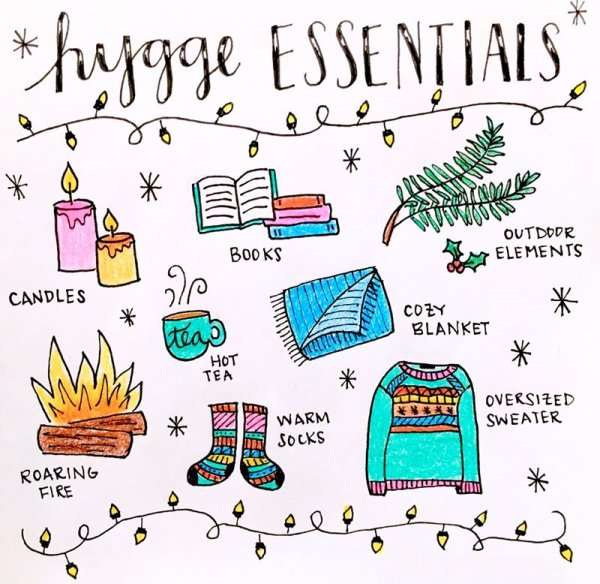 hygge ESSENTIALS
CANDLES
BOOKS
OUTDOOR
ELEMENTS
tea
HOT
TEA
COZY
BLANKET
ROARING
FIRE
WARM
SOCKS
OVERSIZED
SWEATER